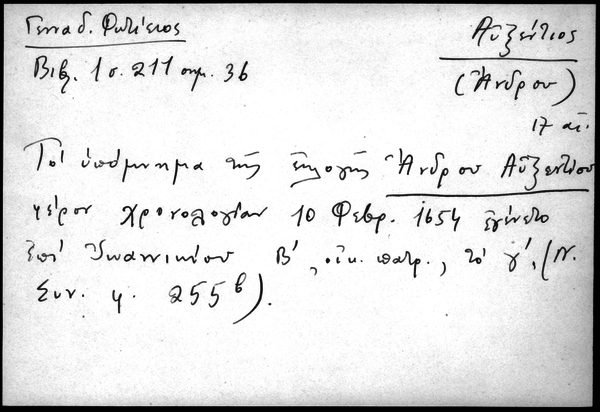 Γενναδ. Φωτίειος
Βιβλ. 1 σ. 211 σημ. 36
Αὐξέντιος
(Ἄνδρου)
17 αἰ.
Τό ὑπόμνημα τῆς ἐκλογῆς Ἄνδρου Αὐξεντίου
φέρον χρονολογίαν 10 Φεβρ. 1654 ἐγένετο
ἐπί Ἰωαννικίου Β', οἰκ. πατρ., τό γ', (Ν.
Συν. φ. 255β).